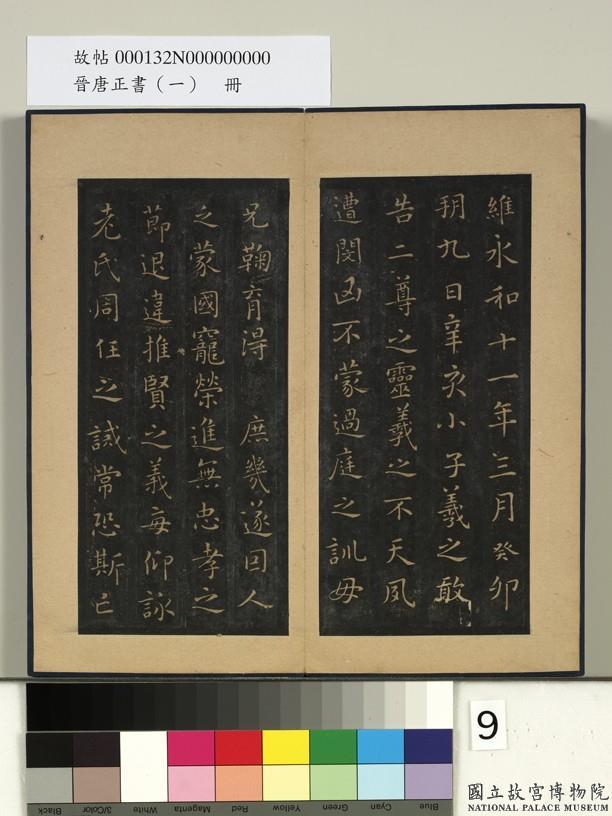 故帖 000132N000000000
晉唐正書（一）　冊
維永和十一年三月癸卯
朔九日辛亥小子羲之敢
告二尊之靈羲之不天夙
遭閔凶不蒙過庭之訓母
兄鞠育得 庶幾遂因人
之蒙國寵榮進無忠孝之
節退違推賢之義每仰詠
老氏周任之誡常恐斯亡
9
Black
3/Color
White
Magenta
Red
Yellow
Green
Cyan
Blue
國立故宮博物院
NATIONAL PALACE MUSEUM